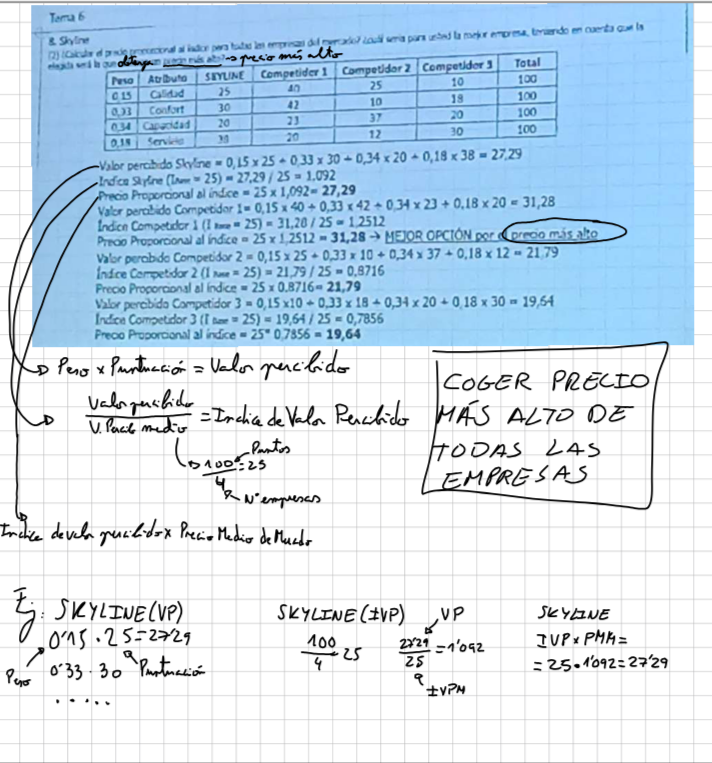 Tema 6
8. Skyline
(2) ¿Calcular el precio proporcional al índice para todas las empresas del mercado? ¿cuál sería para usted la mejor empresa, teniendo en cuenta que la
elegida será la que obtenga un precio más alto? → precio más alto
Peso Atributo SKYLINE Competidor 1 Competidor 2 Competidor 3 Total
0,15 Calidad 25 40 25 10 100
0,33 Confort 30 42 10 18 100
0,34 Capacidad 20 23 37 20 100
0,18 Servicio 38 20 12 30 100
Valor percibido Skyline = 0,15 x 25 + 0,33 x 30 + 0,34 x 20 + 0,18 x 38 = 27,29
Índice Skyline (I Base = 25) = 27,29 / 25 = 1.092
Precio Proporcional al índice = 25 x 1,092= 27,29
Valor percibido Competidor 1= 0,15 x 40 + 0,33 x 42 + 0,34 x 23 + 0,18 x 20 = 31,28
Índice Competidor 1 (I Base = 25) = 31,28 / 25 = 1.2512
Precio Proporcional al índice = 25 x 1,2512 = 31,28 → MEJOR OPCIÓN por el precio más alto
Valor percibido Competidor 2 = 0,15 x 25 + 0,33 x 10 + 0,34 x 37 + 0,18 x 12 = 21,79
Índice Competidor 2 (I Base = 25) = 21,79 / 25 = 0,8716
Precio Proporcional al índice = 25 x 0.8716= 21,79
Valor percibido Competidor 3 = 0,15 x10 + 0,33 x 18 + 0,34 x 20 + 0,18 x 30 = 19,64
Índice Competidor 3 (I Base = 25) = 19,64 / 25 = 0,7856
Precio Proporcional al índice = 25* 0,7856 = 19,64
Peso x Puntuación = Valor percibido
Valor percibido / V. Percib medio = Indice de Valor Percibido
100 / 4 = 25
Puntos
Nº empresas
Indice de valor percibido x Precio Medio de Mercado
COGER PRECIO
MÁS ALTO DE
TODAS LAS
EMPRESAS
Ej: SKYLINE (VP)
0'15 · 25 = 27'29
0'33 · 30
Peso
Puntuación
.....
SKYLINE (IVP)
100 / 4 = 25
VP
27'29 / 25 = 1'092
IVPM
SKYLINE
IVP x PMM =
= 25 · 1'092 = 27'29